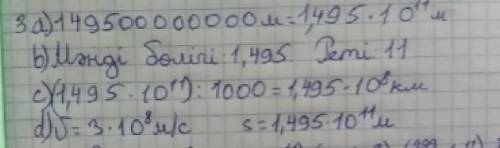 3 a) 149500000000 м = 1,495 · 10¹¹ м
b) Мәнді бөлігі: 1,495 Реті: 11
c) (1,495 · 10¹¹) : 1000 = 1,495 · 10⁸ км
d) v = 3 · 10⁸ м/с s = 1,495 · 10¹¹ м